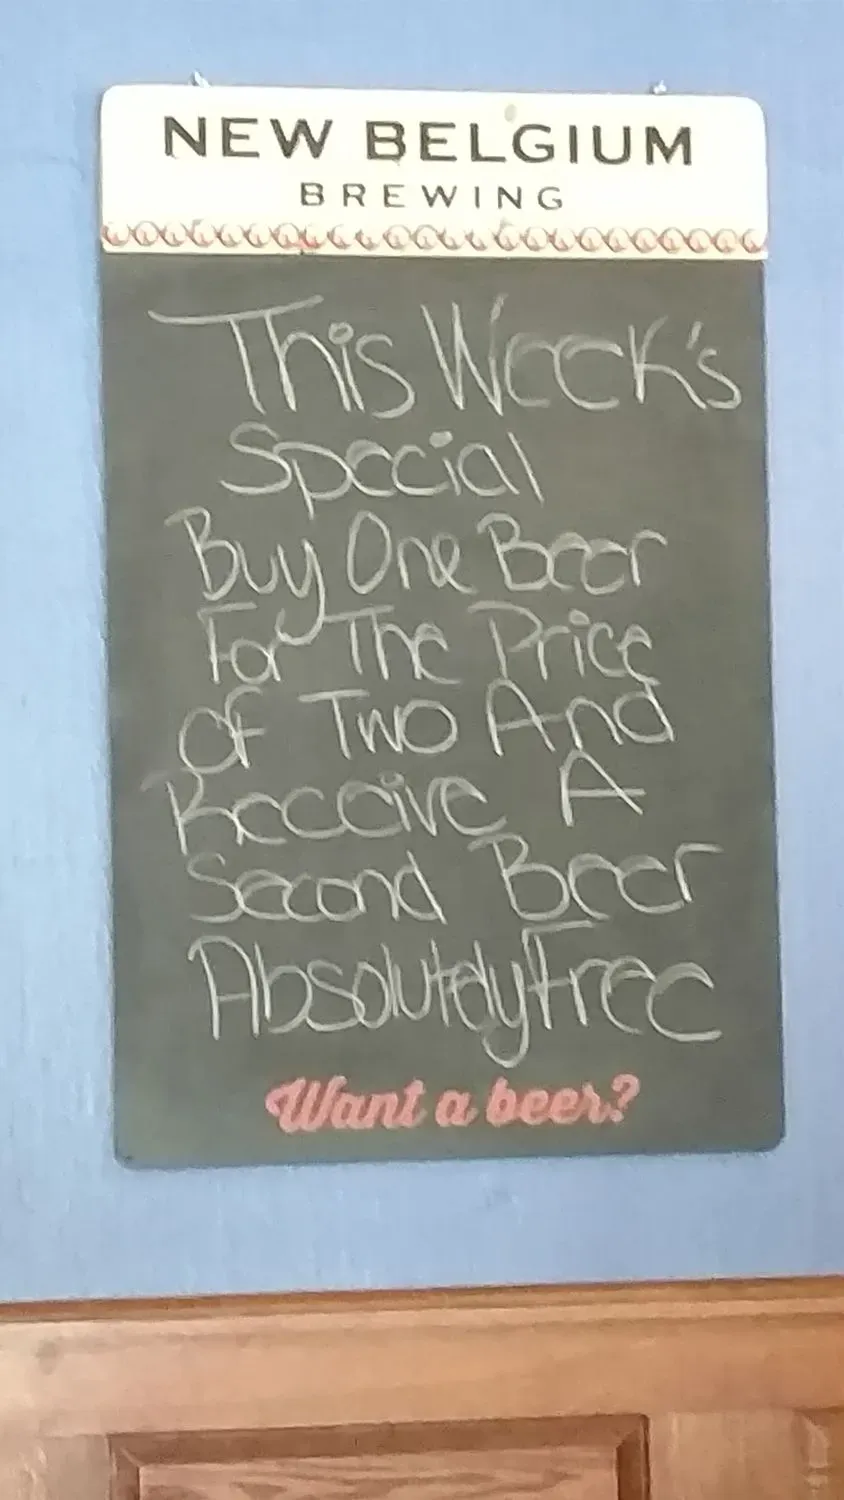 NEW BELGIUM
BREWING
This Week's
Special
Buy One Beer
For The Price
Of Two And
Receive A
Second Beer
Absolutely Free
Want a beer?